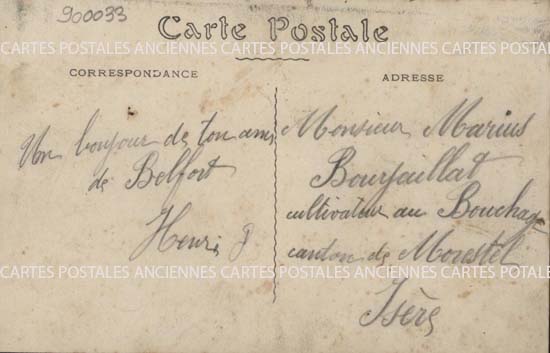 900033
Carte Postale
CARTES POSTALES ANCIENNES CARTES POSTALES ANCIENNES CARTES POSTALES ANCIENNES
CORRESPONDANCE
Un bonjour de ton ami
de Belfort
Henri P
ADRESSE
Monsieur Marius
Bourjaillat
cultivateur au Bouchage
canton de Morestel
Isère
CARTES POSTALES ANCIENNES CARTES POSTALES ANCIENNES CARTES POSTALES ANCIENNES